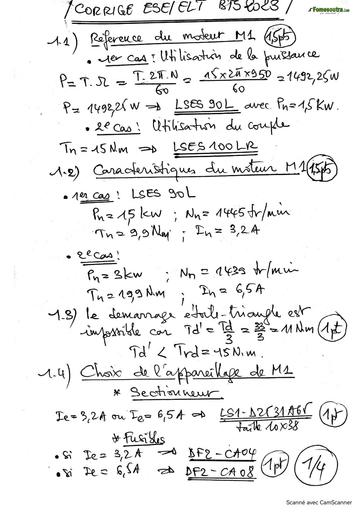 Fomesoutra.com
CORRIGE ESE/ELT BTS 2023
1.1) Réference du moteur M1 1,5pt
• 1er cas : Utilisation de la puissance
P = T.Ω = T.2π.N/60 = 15x2πx950/60 = 1492,25W
P = 1492,25W ⇒ LSES 90L avec Pn = 1,5 KW.
• 2e cas : Utilisation du couple
Tn = 15Nm ⇒ LSES 100LR
1-2) Caracteristiques du moteur M1 1,5pt
• 1er cas : LSES 90L
Pn = 1,5 kW ; Nn = 1445 tr/min
Tn = 9,9Nm ; In = 3,2A
• 2e cas :
Pn = 3kW ; Nn = 1439 tr/min
Tn = 19,9 Nm ; In = 6,5A
1-3) le demarrage étoile-triangle est
impossible car Td' = Td/3 = 33/3 = 11Nm 1pt
Td' < Trd = 15Nm.
1.4) Choix de l'appareillage de M1
* Sectionneur
Ie = 3,2A ou Ie = 6,5A ⇒ LS1-D2531A65 1pt
taille 10x38
* Fusibles
• si Ie = 3,2A ⇒ DF2-CA04
• si Ie = 6,5A ⇒ DF2-CA08 1pt 1/4
Scanné avec CamScanner